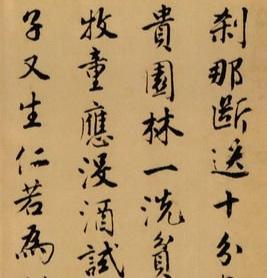 刹那斷送十分
貴園林一洗貧
牧童應没酒試
子又生仁若為